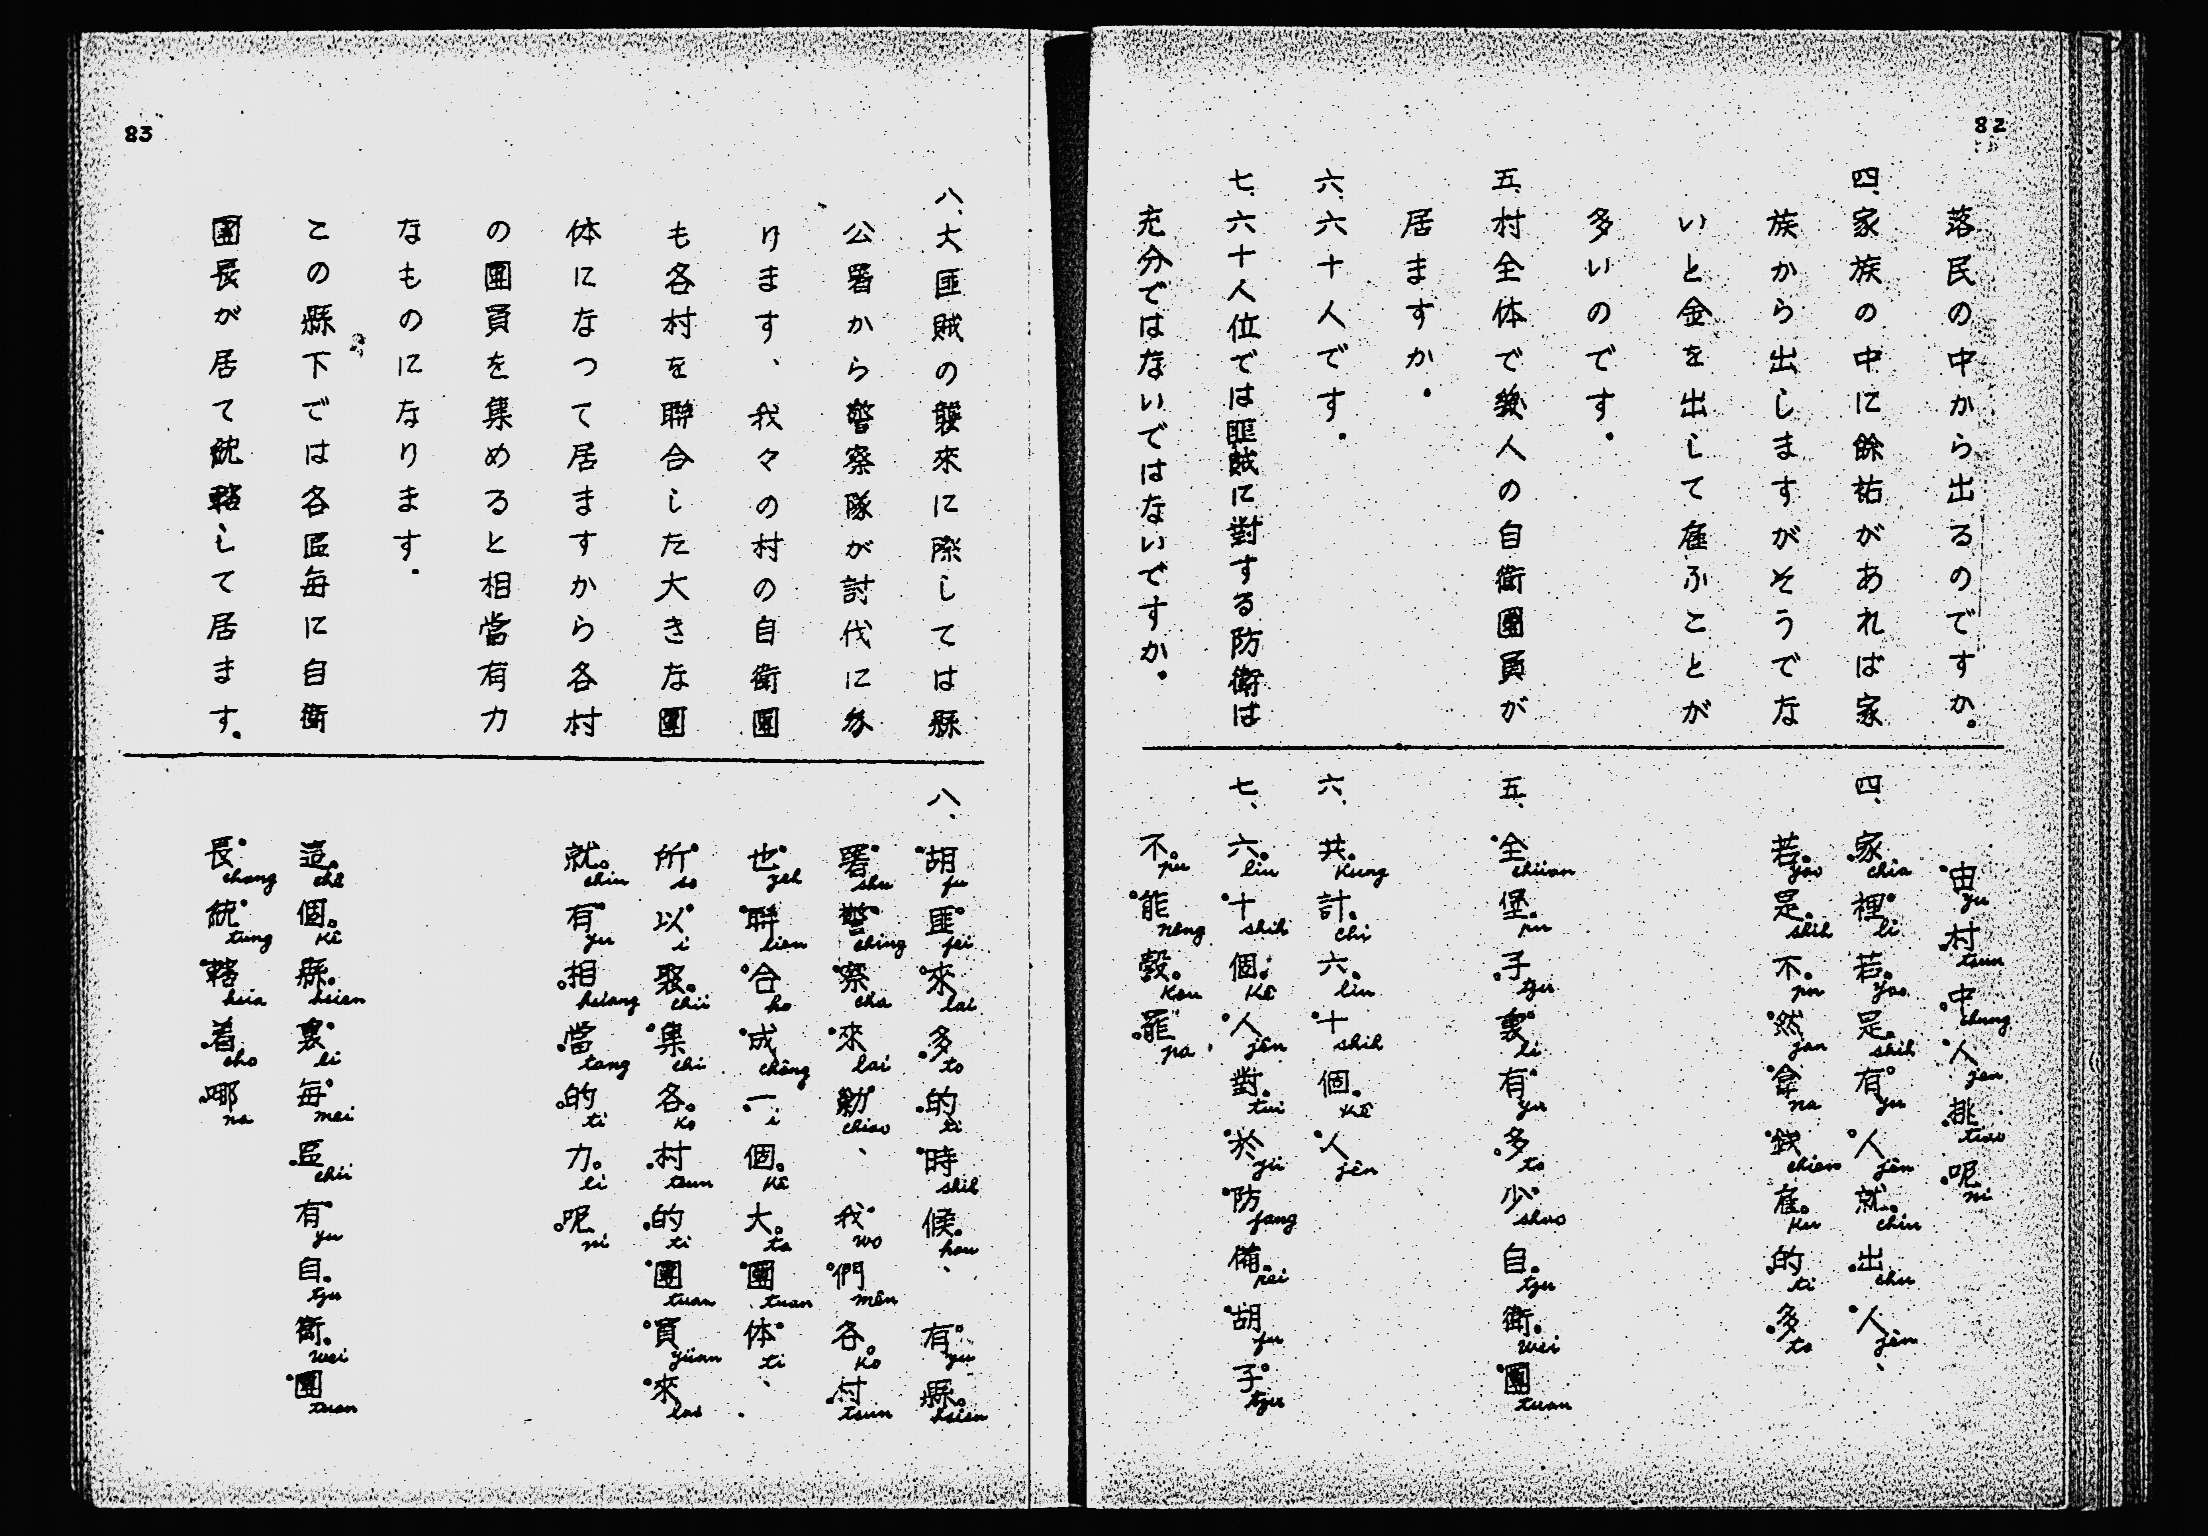 82
落民の中から出るのですか。
四、家族の中に餘祐があれば家
族から出しますがそうでな
いと金を出して雇ふことが
多いのです.
五、村全体で幾人の自衛團員が
居ますか.
六、六十人です.
七、六十人位では匪賊に對する防衛は
充分ではないではないですか.
由村中人挑呢
yu tsun chung jen tiao ni
四、家裡若是有人就出人、
chia li yao shih yu jên chiu chu jên
若是不然拿錢雇的多
yao shih pu jan na chien ku ti to
五、全堡子裏有多少自衛團
chüan pu tzu li yu to shao tzu wei tuan
六、共計六十個人
kung chi liu shih kê jên
七、六十個人對於防備胡子
liu shih kê jên tui yü fang pei fu tzu
不能彀罷
pu nêng kou pa
83
八、大匪賊の襲來に際しては縣
公署から警察隊が討伐に参
ります、我々の村の自衛團
も各村を聯合した大きな團
体になつて居ますから各村
の團員を集めると相當有力
なものになります.
この縣下では各區毎に自衛
團長が居て統轄して居ます.
八、胡匪來多的時候、有縣
fu fei lai to ti shih hou yu hsien
署警察來勦、我們各村
shu ching cha lai chiao wo mên ko tsun
也聯合成一個大團体、
yeh lien ho chêng i kê ta tuan ti
所以聚集各村的團員來
so i chü chi ko tsun ti tuan yüan lai
就有相當的力呢
chiu yu hsiang tang ti li ni
這個縣裏毎區有自衛團
chê kê hsien li mei chü yu tzu wei tuan
長統轄着哪
chang tung hsia cho na